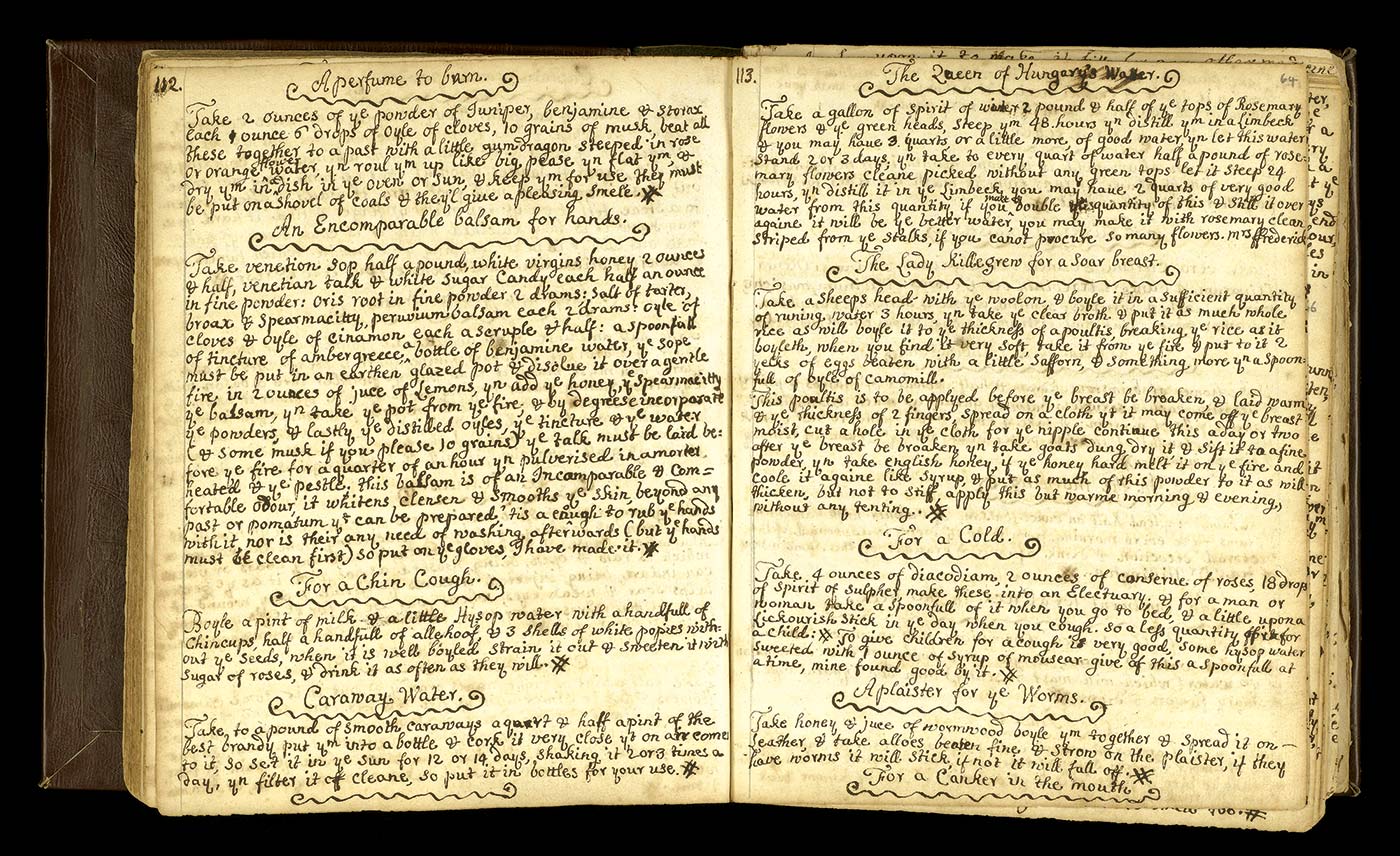 112.
A perfume to burn.
Take 2 ounces of ye powder of Juniper, benjamine & Storax
each 1 ounce 6 drops of oyle of cloves, 10 grains of musk, beat all
these together to a past with a little gum dragon steeped in rose
or orange flower water, yn roul ym up like big pease yn flat ym, &
dry ym in a Dish in ye oven or Sun, & keep ym for use they must
be put on a shovel of coals & they'l give a pleasing Smele.
An Encomparable balsam for hands.
Take venetion Sop half a pound, white virgins honey 2 ounces
& half, venetian talk & white Sugar Candy each half an ounce
in fine powder: oris root in fine powder 2 drams: Salt of tarter,
broax & Spearmacitty, peruvium balsam each 2 drams: oyle of
cloves & oyle of cinamon each a scruple & half: a spoonfull
of tincture of ambergreece, a bottle of benjamine water, ye Sope
must be put in an earthen glazed pot & disolve it over a gentle
fire, in 2 ounces of juce of Lemons, yn add ye honey, ye Spearmacitty
ye balsam, yn take ye pot from ye fire, & by degreese incorporate
ye powders, & lastly ye distilled oyles, ye tincture & ye water
(& Some musk if you please 10 grains) ye talk must be laid be:
fore ye fire for a quarter of an hour yn pulverised in a morter
heated & ye pestle. this balsam is of an Incomparable & Com=
fortable odour, it whitens clensen & Smooths ye skin beyond any
past or pomatum yt can be prepared, tis a enough to rub ye hands
with it, nor is their any need of washing afterwards (but ye hands
must be clean first) So put on ye gloves, I have made it.
For a Chin Cough.
Boyle a pint of milk & a little Hysop water with a handfull of
Chincups, half a handfull of allehoof & 3 Shells of white popies with:
out ye Seeds, when it is well boyled strain it out & Sweeten it with
Sugar of roses, & drink it as often as they will.
Caraway Water.
Take, to a pound of Smooth caraways a quart & half a pint of the
best brandy put ym into a bottle & cork it very close yt on are come
to it, So set it in ye Sun for 12 or 14 days, shaking it 2 or 3 times a
day, yn filter it off cleane, so put it in bottles for your use.
113.
64
The Queen of Hungary's Water.
Take a gallon of Spirit of wine, 2 pound & half of ye tops of Rosemary
flowers & ye green heads, steep ym 48 hours yn distill ym in a Limbeck
& you may have 3 quarts or a little more, of good water yn let this water
Stand 2 or 3 days, yn take to every quart of water half a pound of rose-
mary flowers cleane picked without any green tops let it Steep 24
hours, yn distill it in ye Limbeck, you may have 2 quarts of very good
water from this quantity if you make double ye quantity of this & Still it over
againe it will be ye better water, you may make it with rosemary clean
Striped from ye Stalks, if you canot procure So many flowers. mrs ffrederick
The Lady Killegrew for a Soar breast.
Take a sheeps head with ye woolon, & boyle it in a sufficient quantity
of runing water 3 hours, yn take ye clear broth & put it as much whole
rice as will boyle it to ye thickness of a poultis, breaking ye rice as it
boyleth, when you find it very Soft, take it from ye fire & put to it 2
yelks of eggs beaten with a little Saffern, & Something more yn a Spoon:
full of oyle of camomill.
This poultis is to be applyed before ye breast be broaken, & laid warm,
& ye thickness of 2 fingers, spread on a cloth yt it may come off ye breast
moist, cut a hole in ye cloth for ye nipple continue this a day or two
after ye breast be broaken, yn take goats dung dry it & sift it to a fine
powder, yn take english honey, if ye honey hard melt it on ye fire and
coole it againe like Syrup, & put as much of this powder to it as will
thicken, but not to Stiff, apply this but warme morning & evening,
without any tenting.
For a Cold.
Take 4 ounces of diacodiam, 2 ounces of conserve of roses, 18 drops
of Spirit of Sulpher make these into an Electuary; & for a man or
woman take a Spoonfull of it when you go to bed, & a little upon a
Lickourish Stick in ye day when you cough. So a less quantity for
a child: To give children for a cough is very good, some hysop water
sweeted with 1 ounce of Syrup of mousear give of this a Spoonfull at
a time, mine found good by it.
A plaister for ye Worms.
Take honey & juce of wormwood boyle ym together & Spread it on
leather, & take alloes beaten fine & Strow on the plaister, if they
have worms it will Stick, if not it will fall off.
For a Canker in the mouth